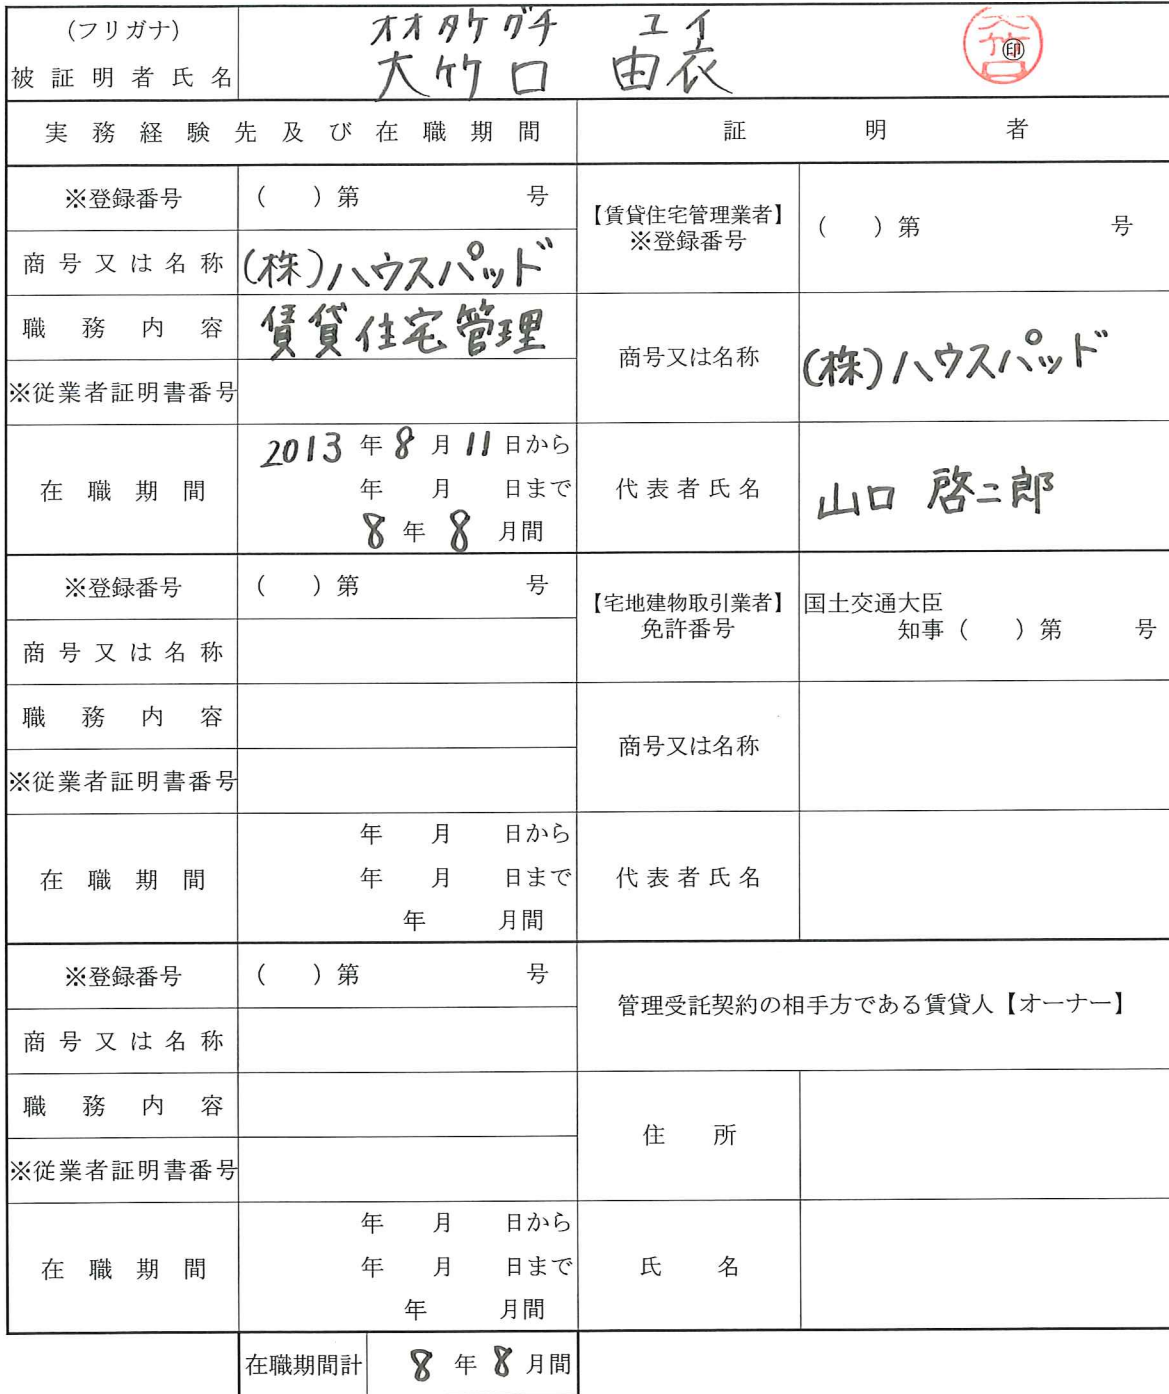 (フリガナ) オオタケグチ ユイ
被証明者氏名 大竹口 由衣 ㊞
実務経験先及び在職期間 証明者
※登録番号 ( )第 号
商号又は名称 (株)ハウスパッド
職務内容 賃貸住宅管理
※従業者証明書番号
在職期間 2013年8月11日から
年 月 日まで
8年8月間
【賃貸住宅管理業者】
※登録番号 ( )第 号
商号又は名称 (株)ハウスパッド
代表者氏名 山口 啓二郎
※登録番号 ( )第 号
商号又は名称
職務内容
※従業者証明書番号
在職期間 年 月 日から
年 月 日まで
年 月間
【宅地建物取引業者】 国土交通大臣
免許番号 知事( )第 号
商号又は名称
代表者氏名
※登録番号 ( )第 号
商号又は名称
職務内容
※従業者証明書番号
在職期間 年 月 日から
年 月 日まで
年 月間
管理受託契約の相手方である賃貸人【オーナー】
住所
氏名
在職期間計 8年8月間